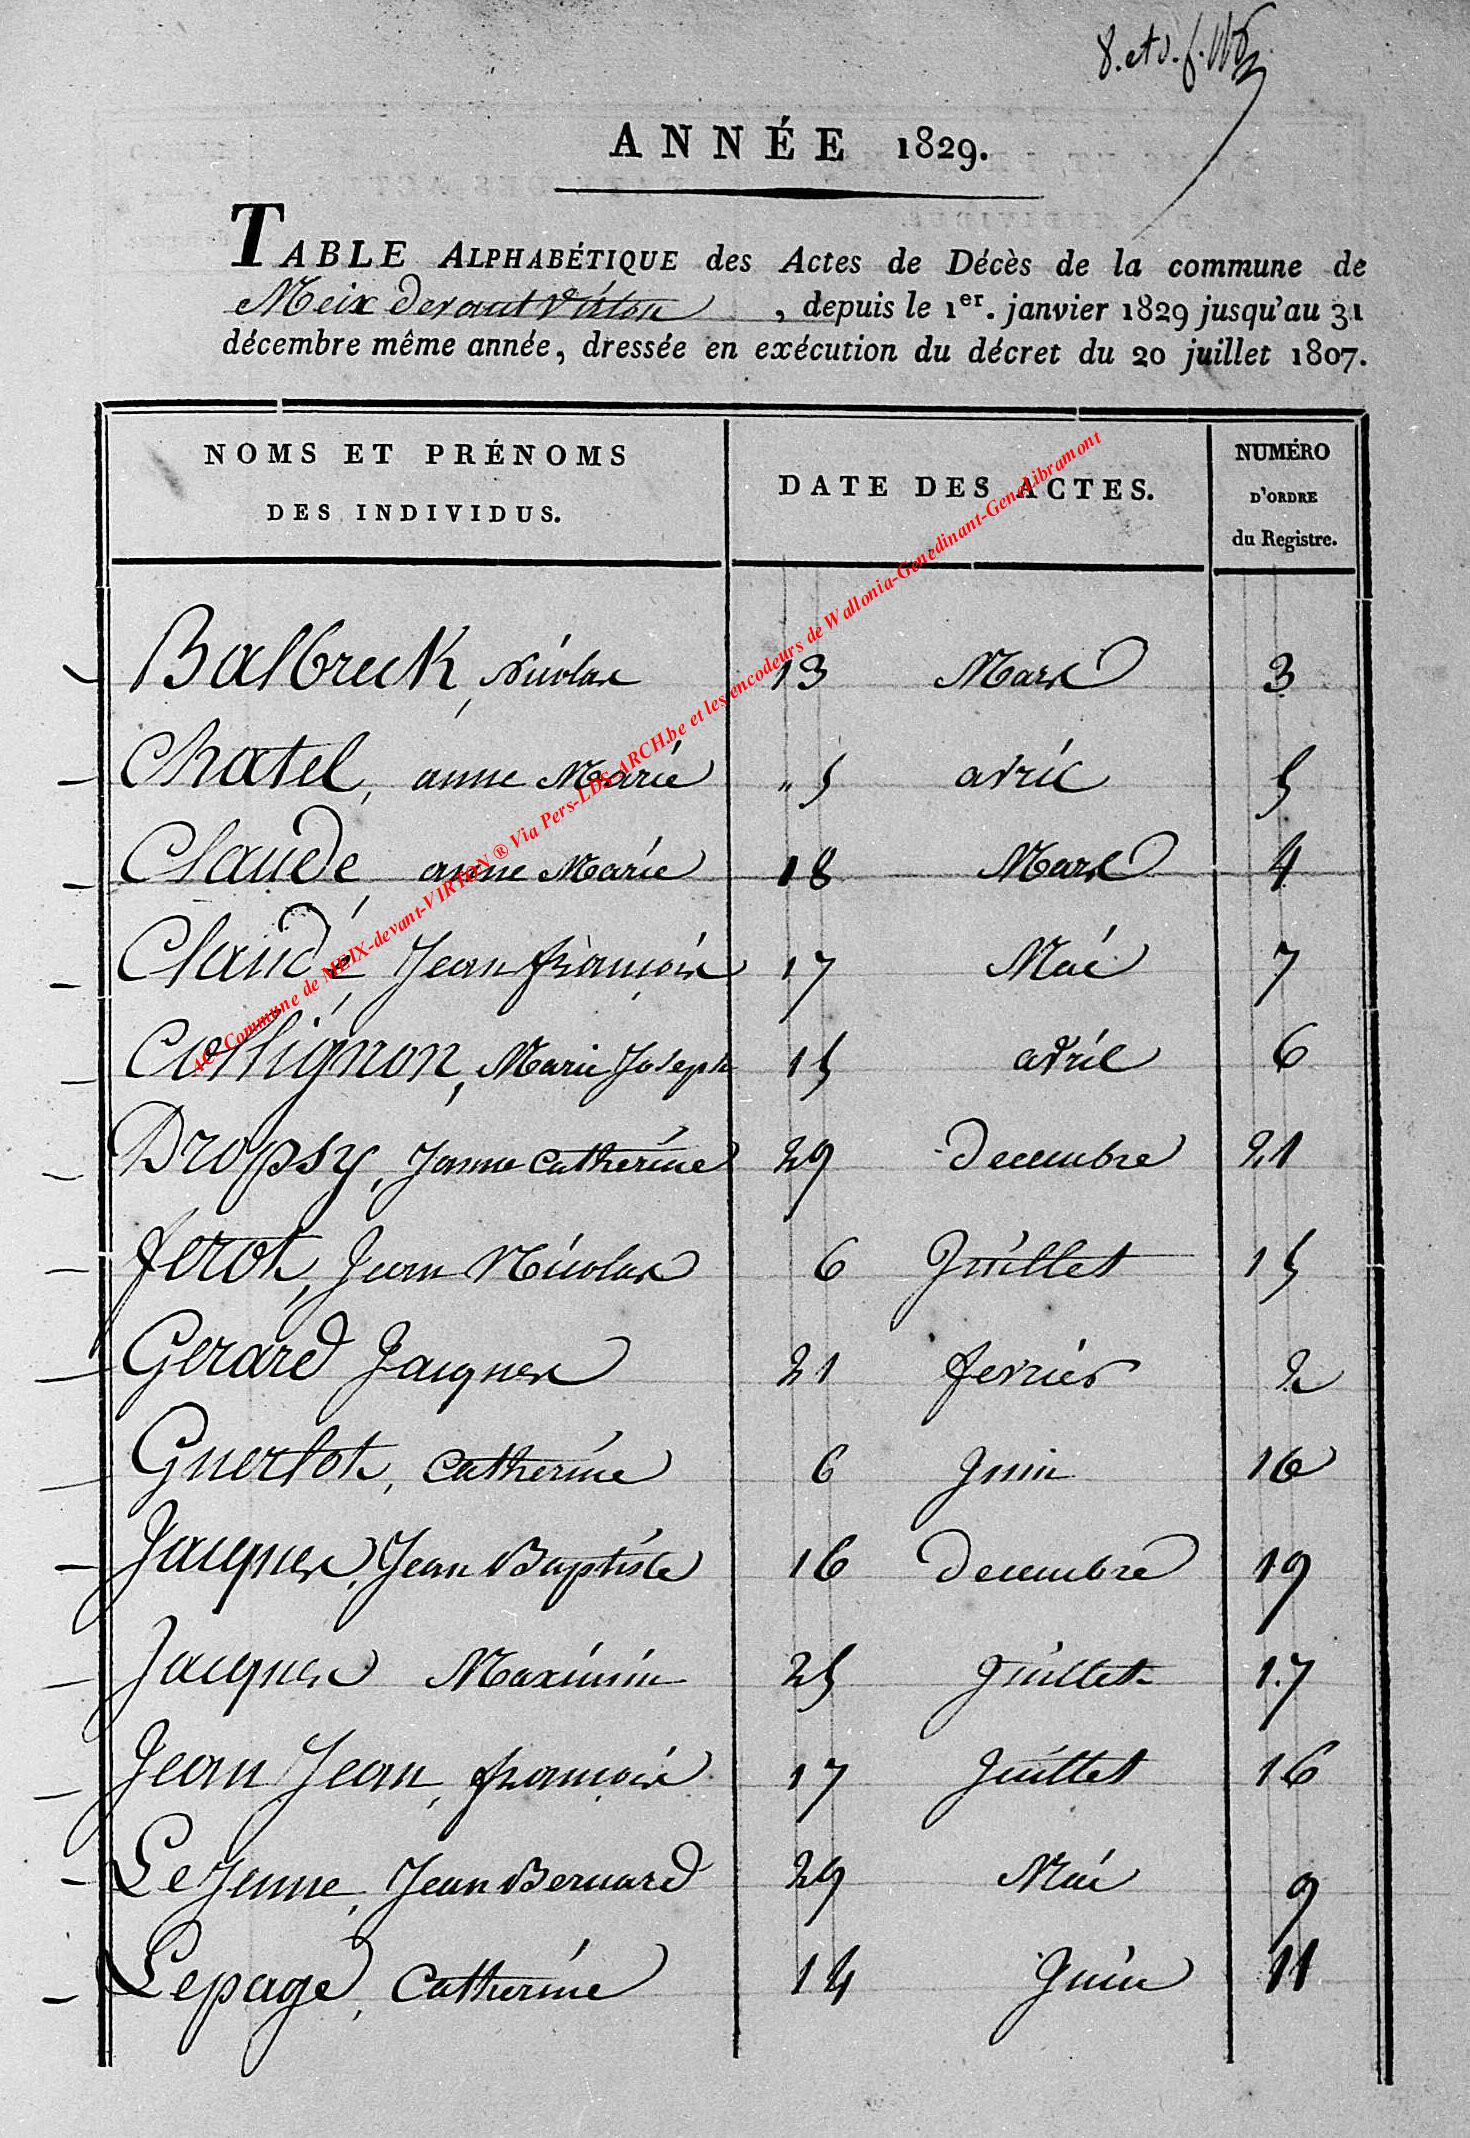 8. et d. f.
ANNÉE 1829.
TABLE ALPHABÉTIQUE des Actes de Décès de la commune de
Meix devant Virton, depuis le 1er. janvier 1829 jusqu'au 31
décembre même année, dressée en exécution du décret du 20 juillet 1807.
NOMS ET PRÉNOMS
DES INDIVIDUS.
DATE DES ACTES.
NUMÉRO
D'ORDRE
du Registre.
4C- Commune de MEIX-devant-VIRTON ® Via Pers-LDS-ARCH.be et les encodeurs de Wallonia-Genedinant-GeneLibramont
Balbreck, Nicolas 13 Mars 3
Chatel, anne Marie " 5 avril 5
Claude, anne Marie 18 Mars 4
Claude, Jean françois 17 Mai 7
Collignon, Marie Joseph 15 avril 6
Dropsy, Jeanne Catherine 29 Decembre 21
ferot, Jean Nicolas 6 Juillet 15
Gerard Jacques 21 fevrier 2
Guerlot, Catherine 6 Juin 10
Jacques, Jean Baptiste 16 Decembre 19
Jacques Maximin 25 Juillet 17
Jean Jean, françois 17 Juillet 16
Le Jeune, Jean Bernard 29 Mai 9
Lepage, Catherine 14 Juin 11